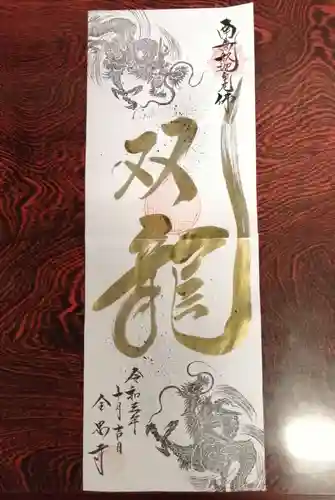 南無釈迦牟尼佛
双龍
令和三年
十月吉日
全昌寺